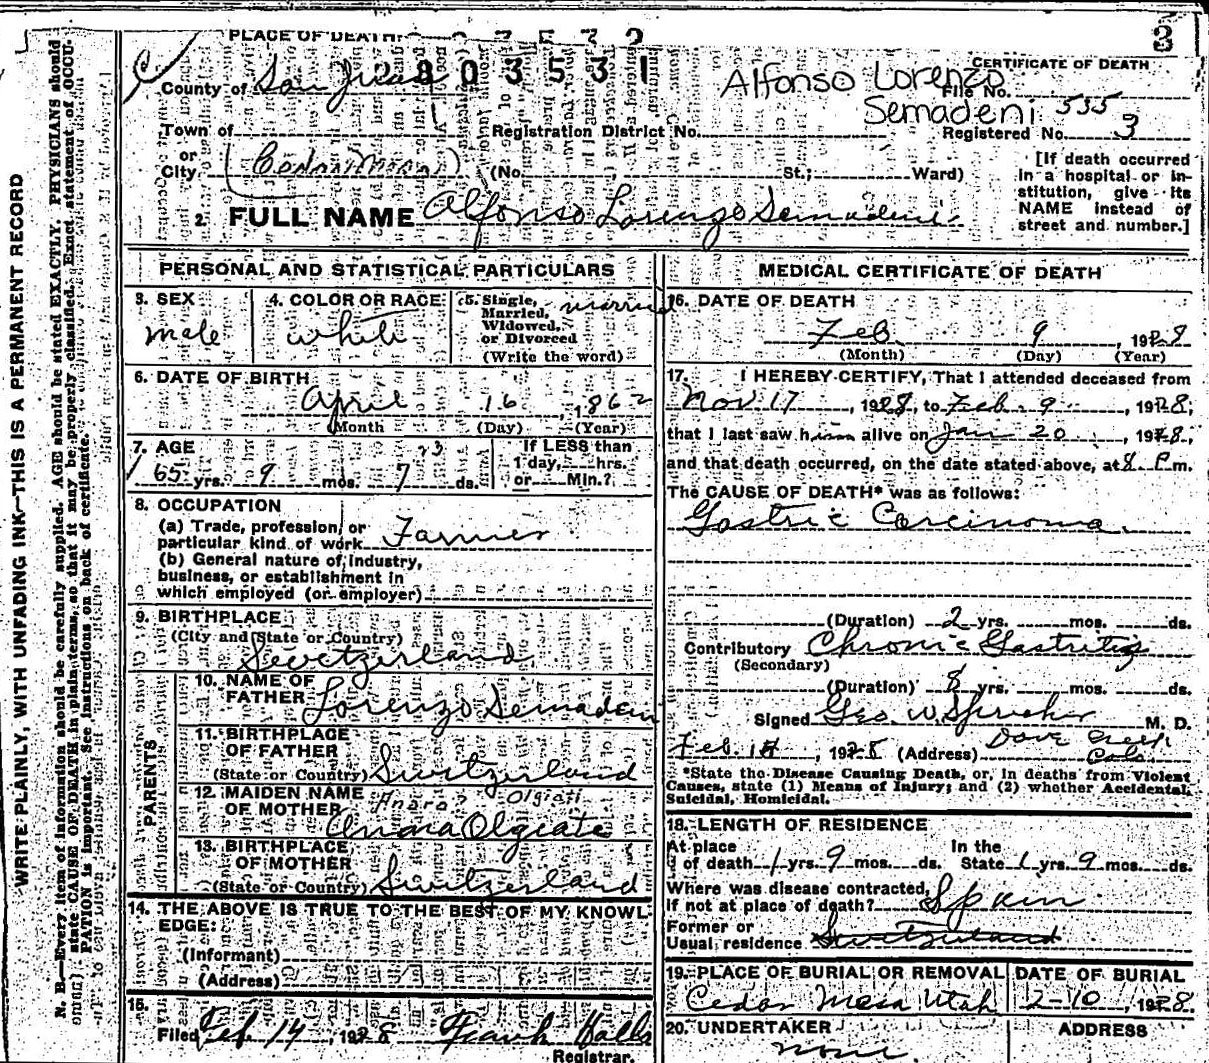 PLACE OF DEATH
2803531
3
CERTIFICATE OF DEATH
Alfonso Lorenzo
Semadeni
County of San Juan
File No. 555
Town of
Registration District No.
Registered No. 3
or
City
(No. St.; Ward)
[If death occurred
in a hospital or in-
stitution, give its
NAME instead of
street and number.]
2. FULL NAME Alfonso Lorenzo Semadeni
PERSONAL AND STATISTICAL PARTICULARS
3. SEX
male
4. COLOR OR RACE
white
5. Single,
Married,
Widowed,
or Divorced
(Write the word)
married
6. DATE OF BIRTH
April 16, 1862
Month (Day) (Year)
7. AGE
23
65 yrs. 9 mos. 7 ds.
If LESS than
1 day, hrs.
or Min.?
8. OCCUPATION
(a) Trade, profession, or
particular kind of work Farmer
(b) General nature of industry,
business, or establishment in
which employed (or employer)
9. BIRTHPLACE
(City and State or Country)
Switzerland
PARENTS
10. NAME OF
FATHER Lorenzo Semadeni
11. BIRTHPLACE
OF FATHER
(State or Country) Switzerland
12. MAIDEN NAME
OF MOTHER
Olgiati
Olgeate
13. BIRTHPLACE
OF MOTHER
(State or Country) Switzerland
14. THE ABOVE IS TRUE TO THE BEST OF MY KNOWL-
EDGE:
(Informant)
(Address)
15.
Filed Feb. 14, 1928 Frank Halls
Registrar.
MEDICAL CERTIFICATE OF DEATH
16. DATE OF DEATH
Feb 9, 1928
(Month) (Day) (Year)
17. I HEREBY CERTIFY, That I attended deceased from
Nov 17, 1928, to Feb. 9, 1928,
that I last saw him alive on Jan 20, 1928,
and that death occurred, on the date stated above, at 8 P.m.
The CAUSE OF DEATH* was as follows:
Gastric Carcinoma.
(Duration) 2 yrs. mos. ds.
Contributory Chronic Gastritis
(Secondary)
(Duration) 8 yrs. mos. ds.
Signed Geo. W M. D.
Feb. 1928 (Address) Dove Creek
Colo.
*State the Disease Causing Death, or, in deaths from Violent
Causes, state (1) Means of Injury; and (2) whether Accidental,
Suicidal, Homicidal.
18. LENGTH OF RESIDENCE
At place
of death 1 yrs. 9 mos. ds.
In the
State 1 yrs. 9 mos. ds.
Where was disease contracted,
if not at place of death?
Former or
Usual residence Switzerland
19. PLACE OF BURIAL OR REMOVAL
Cedar Mesa Utah
DATE OF BURIAL
2-10, 1928
20. UNDERTAKER
none
ADDRESS
WRITE PLAINLY, WITH UNFADING INK—THIS IS A PERMANENT RECORD
N. B.—Every item of information should be carefully supplied. AGE should be stated EXACTLY. PHYSICIANS should
state CAUSE OF DEATH in plain terms, so that it may be properly classified. Exact statement of OCCU-
PATION is important. See instructions on back of certificate.